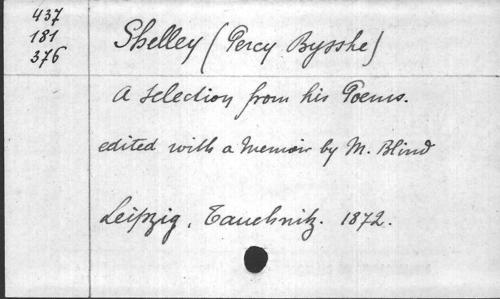 437
181
376
Shelley (Percy Bysshe)
A selection from his Poems.
edited with a Memoir by M. Blind
Leipzig, Tauchnitz. 1872.